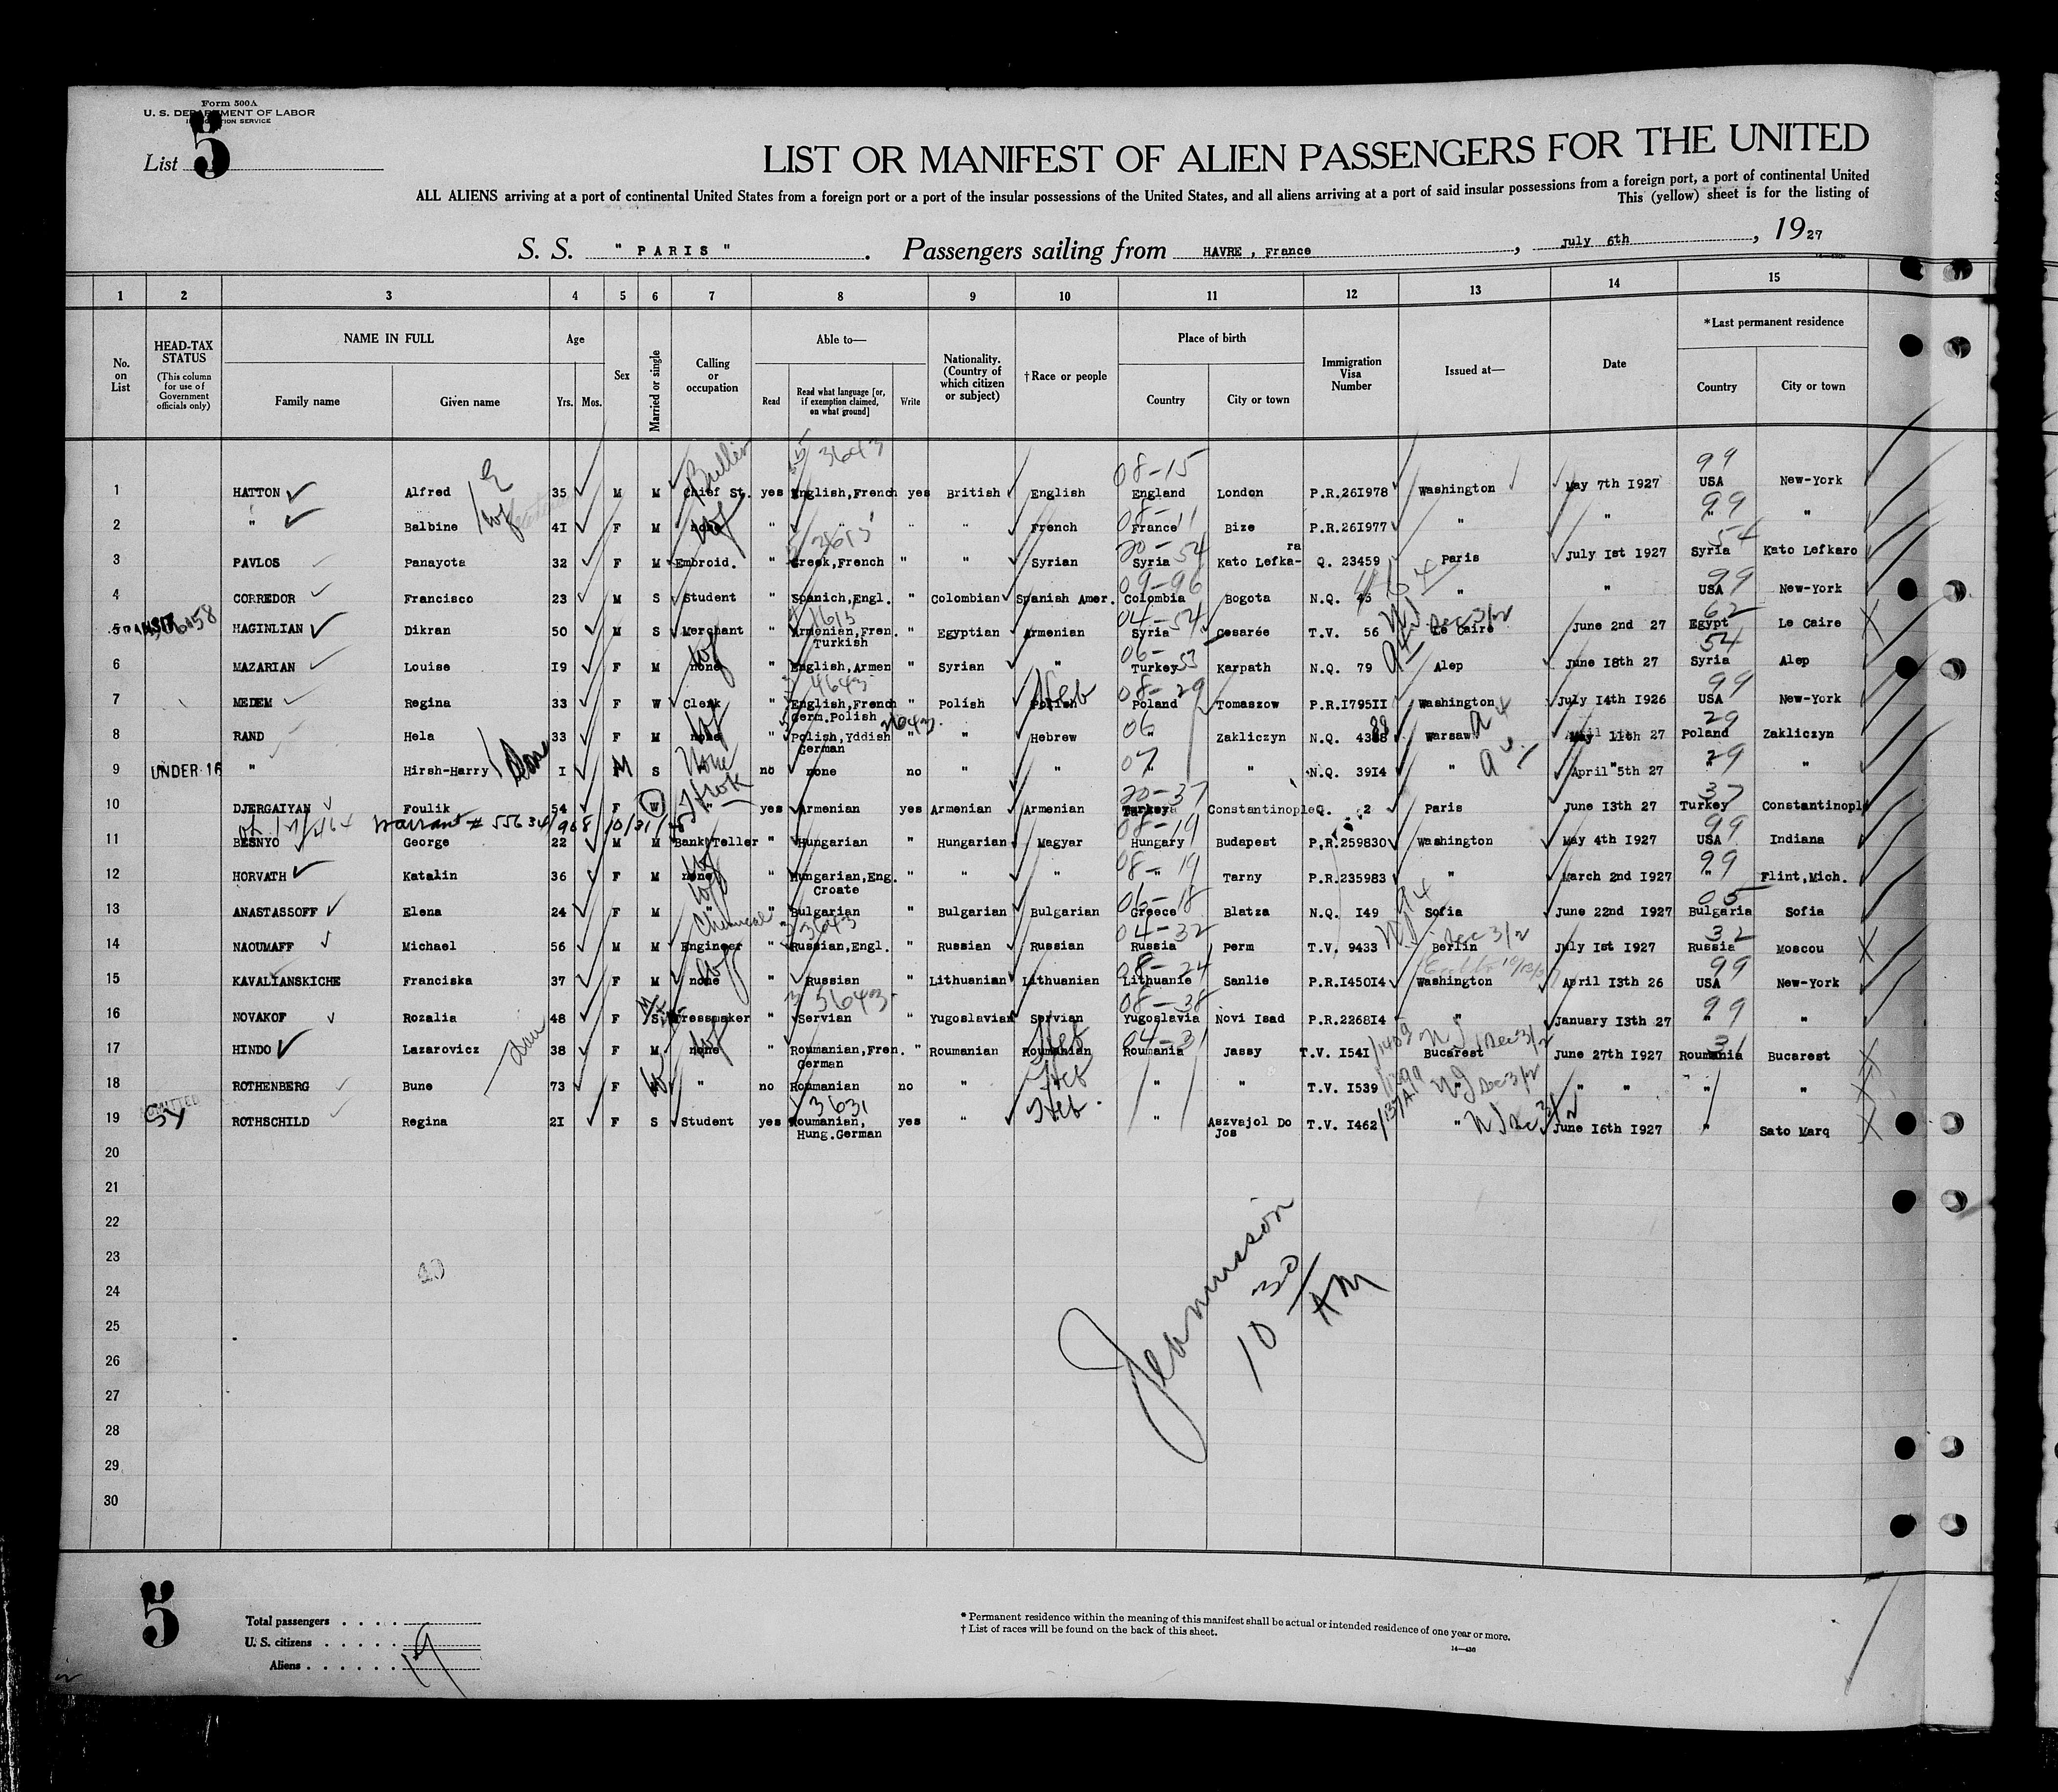 Form 500A
U. S. DEPARTMENT OF LABOR
IMMIGRATION SERVICE
List 5
LIST OR MANIFEST OF ALIEN PASSENGERS FOR THE UNITED
ALL ALIENS arriving at a port of continental United States from a foreign port or a port of the insular possessions of the United States, and all aliens arriving at a port of said insular possessions from a foreign port, a port of continental United
This (yellow) sheet is for the listing of
S. S. " PARIS " . Passengers sailing from HAVRE , France , July 6th , 1927
1 2 3 4 5 6 7 8 9 10 11 12 13 14 15
No. on List
HEAD-TAX STATUS (This column for use of Government officials only)
NAME IN FULL
Family name Given name
Age
Yrs. Mos.
Sex
Married or single
Calling or occupation
Able to—
Read Read what language [or, if exemption claimed, on what ground] Write
Nationality. (Country of which citizen or subject)
†Race or people
Place of birth
Country City or town
Immigration Visa Number
Issued at—
Date
*Last permanent residence
Country City or town
3643 08-15 99
1 HATTON Alfred 35 M M Chief St. yes English,French yes British English England London P.R.261978 Washington May 7th 1927 USA New-York
wf 08-11 99
2 " Balbine 41 F M none " " " " French France Bize P.R.261977 " " " "
3613 20-54 54
3 PAVLOS Panayota 32 F M Embroid. " Greek,French " " Syrian Syria Kato Lefka-ra Q. 23459 Paris July 1st 1927 Syria Kato Lefkaro
09-96 99
4 CORREDOR Francisco 23 M S Student " Spanich,Engl. " Colombian Spanish Amer. Colombia Bogota N.Q. 45 " " USA New-York
1613 04-54 62
5 TRANSIT HAGINLIAN Dikran 50 M S Merchant " Armenian,Fren. Turkish " Egyptian Armenian Syria Cesarée T.V. 56 Le Caire June 2nd 27 Egypt Le Caire
wf 06-53 54
6 MAZARIAN Louise 19 F M none " English,Armen " Syrian " Turkey Karpath N.Q. 79 Alep June 18th 27 Syria Alep
4643 Heb 08-29 99
7 MEDEM Regina 33 F W Clerk " English,French Germ.Polish " Polish Polish Poland Tomaszow P.R.179511 Washington July 14th 1926 USA New-York
wf 2643 06 29
8 RAND Hela 33 F M none " Polish,Yddish German " " Hebrew " Zakliczyn N.Q. 4388 Warsaw May 11th 27 Poland Zakliczyn
None 07 29
9 UNDER 16 " Hirsh-Harry 1 M S " no none no " " " " N.Q. 3914 " April 5th 27 " "
20-37 37
10 DJERGAIYAN Foulik 54 F W " yes Armenian yes Armenian Armenian Turkey Constantinople Q. 2 Paris June 13th 27 Turkey Constantinopl
Warrant # 55634/968 10/31/28
08-19 99
11 BESNYO George 22 M M Bank Teller " Hungarian " Hungarian Magyar Hungary Budapest P.R.259830 Washington May 4th 1927 USA Indiana
wf 08-19 99
12 HORVATH Katalin 36 F M none " Hungarian,Eng. Croate " " " " Tarny P.R.235983 " March 2nd 1927 " Flint,Mich.
wf 06-18 05
13 ANASTASSOFF Elena 24 F M " " Bulgarian " Bulgarian Bulgarian Greece Blatza N.Q. 149 Sofia June 22nd 1927 Bulgaria Sofia
Chemical 3643 04-32 32
14 NAOUMAFF Michael 56 M M Engineer " Russian,Engl. " Russian Russian Russia Perm T.V. 9433 Berlin July 1st 1927 Russia Moscou
wf 08-24 99
15 KAVALIANSKICHE Franciska 37 F M none " Russian " Lithuanian Lithuanian Lithuanie Sanlie P.R.145014 Washington April 13th 26 USA New-York
08-38 99
16 NOVAKOF Rozalia 48 F S Dressmaker " Servian " Yugoslavian Servian Yugoslavia Novi Isad P.R.226814 " January 13th 27 " "
wf Heb 04-31 31
17 HINDO Lazarovicz 38 F M none " Roumanian,Fren. German " Roumanian Roumanian Roumania Jassy T.V. 1541 Bucarest June 27th 1927 Roumania Bucarest
Heb
18 ROTHENBERG Bune 73 F W " no Roumanian no " " " T.V. 1539 " " " " "
ADMITTED 3631 Heb.
19 ROTHSCHILD Regina 21 F S Student yes Roumanian, Hung.German yes " " Aszvajol Do Jos T.V. 1462 " June 16th 1927 " Sato Marq
20
21
22
23
24
25
26
27
28
29
30
40
Jeannisson
10 30 AM
5
Total passengers
U. S. citizens
Aliens
19
* Permanent residence within the meaning of this manifest shall be actual or intended residence of one year or more.
† List of races will be found on the back of this sheet.
14—436